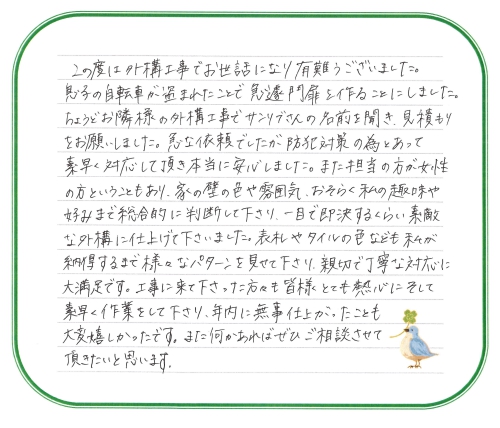 この度は外構工事でお世話になり有難うございました。
息子の自転車が盗まれたことで急遽門扉を作ることにしました。
ちょうどお隣様の外構工事でサンリブさんの名前を聞き、見積もり
をお願いしました。急な依頼でしたが防犯対策の為とあって
素早く対応して頂き本当に安心しました。また担当の方が女性
の方ということもあり、家の壁の色や雰囲気、おそらく私の趣味や
好みまで総合的に判断して下さり、一目で即決するくらい素敵
な外構に仕上げて下さいました。表札やタイルの色なども私が
納得するまで様々なパターンを見せて下さり、親切で丁寧な対応に
大満足です。工事に来て下さった方々も皆様とても熱心にそして
素早く作業をして下さり、年内に無事仕上がったことも
大変嬉しかったです。また何かあればぜひご相談させて
頂きたいと思います。